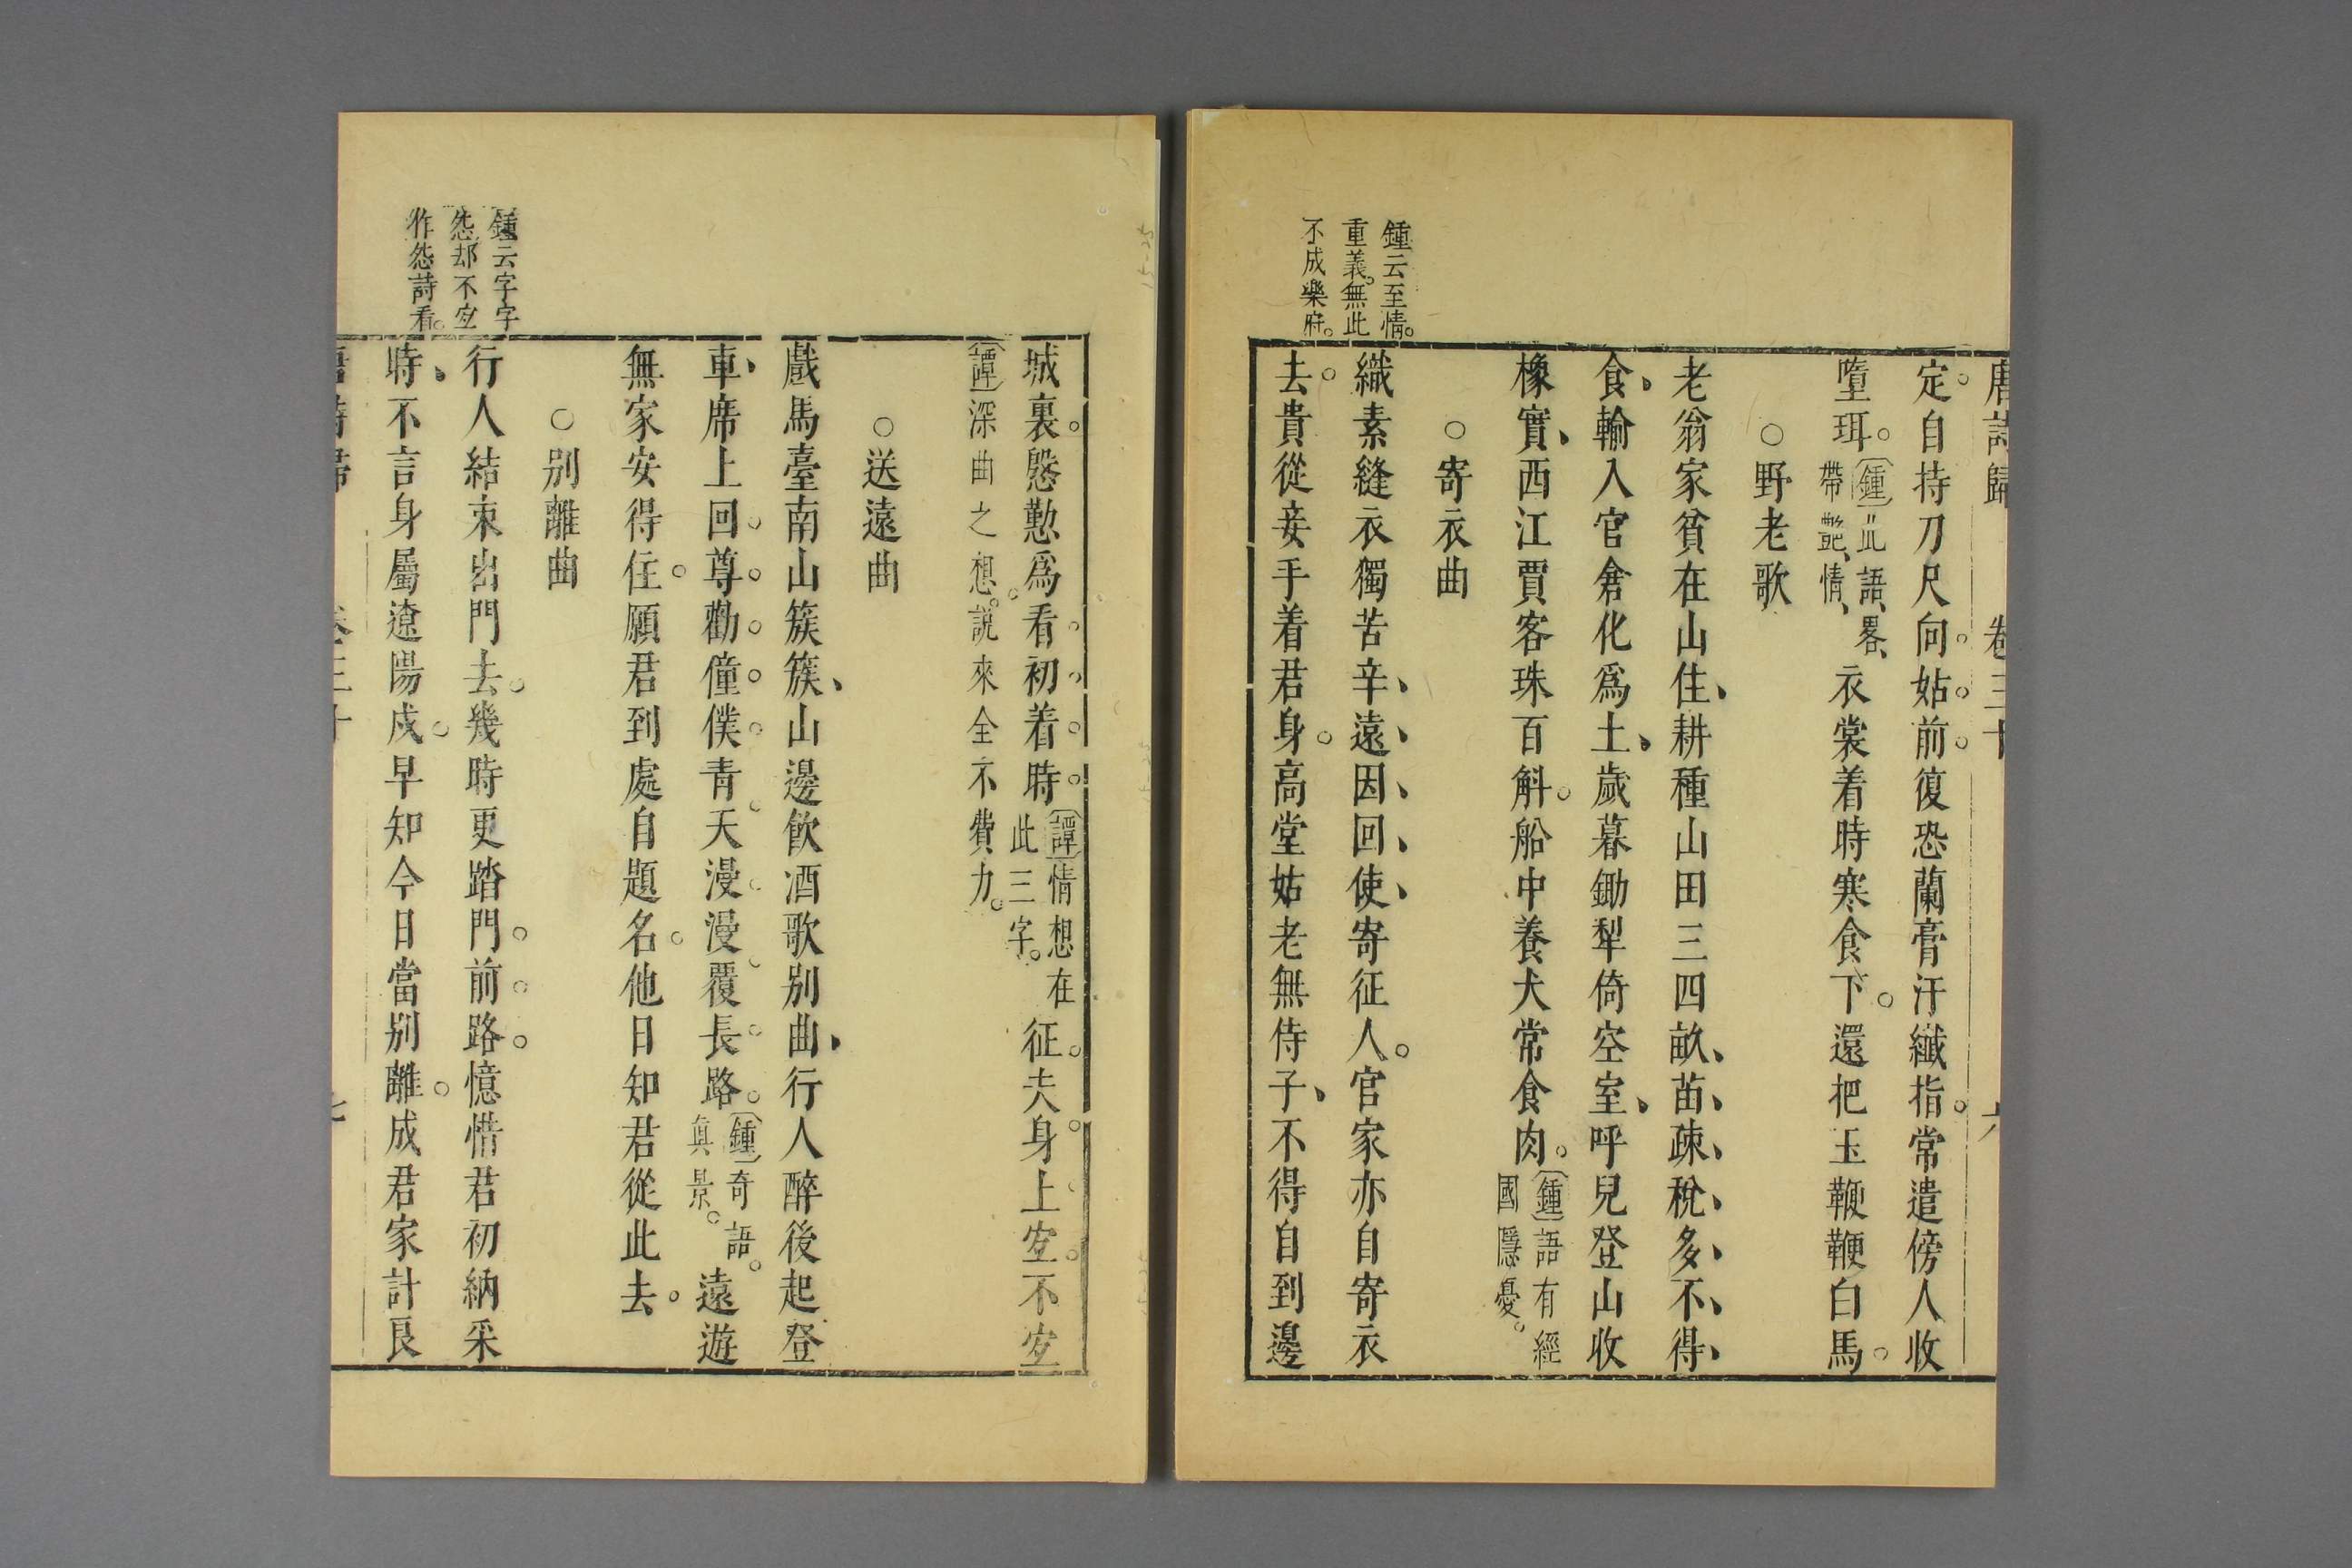 唐詩歸 卷三十 六
定。自持刀尺向姑前。復恐蘭膏汗纖指。常遣傍人收
墮珥。鍾此語、畧、帶艷、情、衣裳着時寒食下。還把玉鞭鞭白馬。
○野老歌
老翁家貧在山住、耕種山田三四畝、苗疎稅多不得、
食、輸入官倉化爲土、歲暮鋤犁倚空室、呼兒登山收
橡實、西江賈客珠百斛。船中養犬常食肉。鍾語有經國隱憂。
○寄衣曲
鍾云至情。
重義。無此
不成樂府。
織素縫衣獨苦辛、遠因回使、寄征人。官家亦自寄衣
去。貴從妾手着君身。高堂姑老無侍子、不得自到邊
城裏。慇懃爲看初着時。譚情想在此三字。征夫身上宐不宐
譚深曲之想。說來全不費力。
○送遠曲
戲馬臺南山簇簇、山邊飲酒歌别曲、行人醉後起登
車、席上回尊勸僮僕。青天漫漫覆長路。鍾奇語。眞景。遠遊
無家安得住。願君到處自題名。他日知君從此去。
○别離曲
鍾云字字
怨却不宐
作怨詩看。
行人結束出門去。幾時更踏門前路。憶惜君初納采
時、不言身屬遼陽戍。早知今日當别離。成君家計良
唐詩歸 卷三十 七